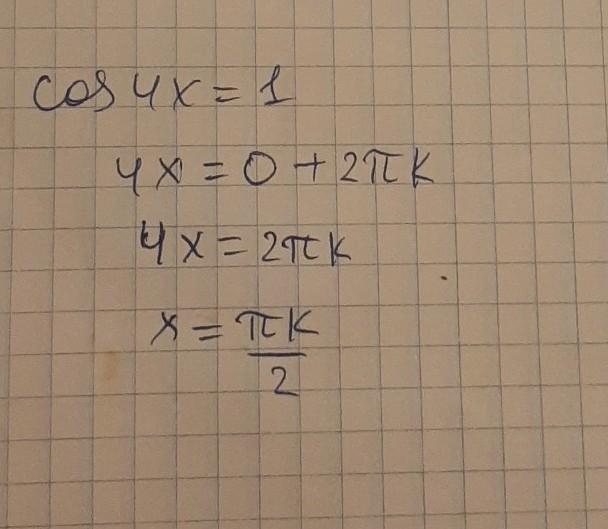 cos 4x = 1
4x = 0 + 2πk
4x = 2πk
x = πk/2